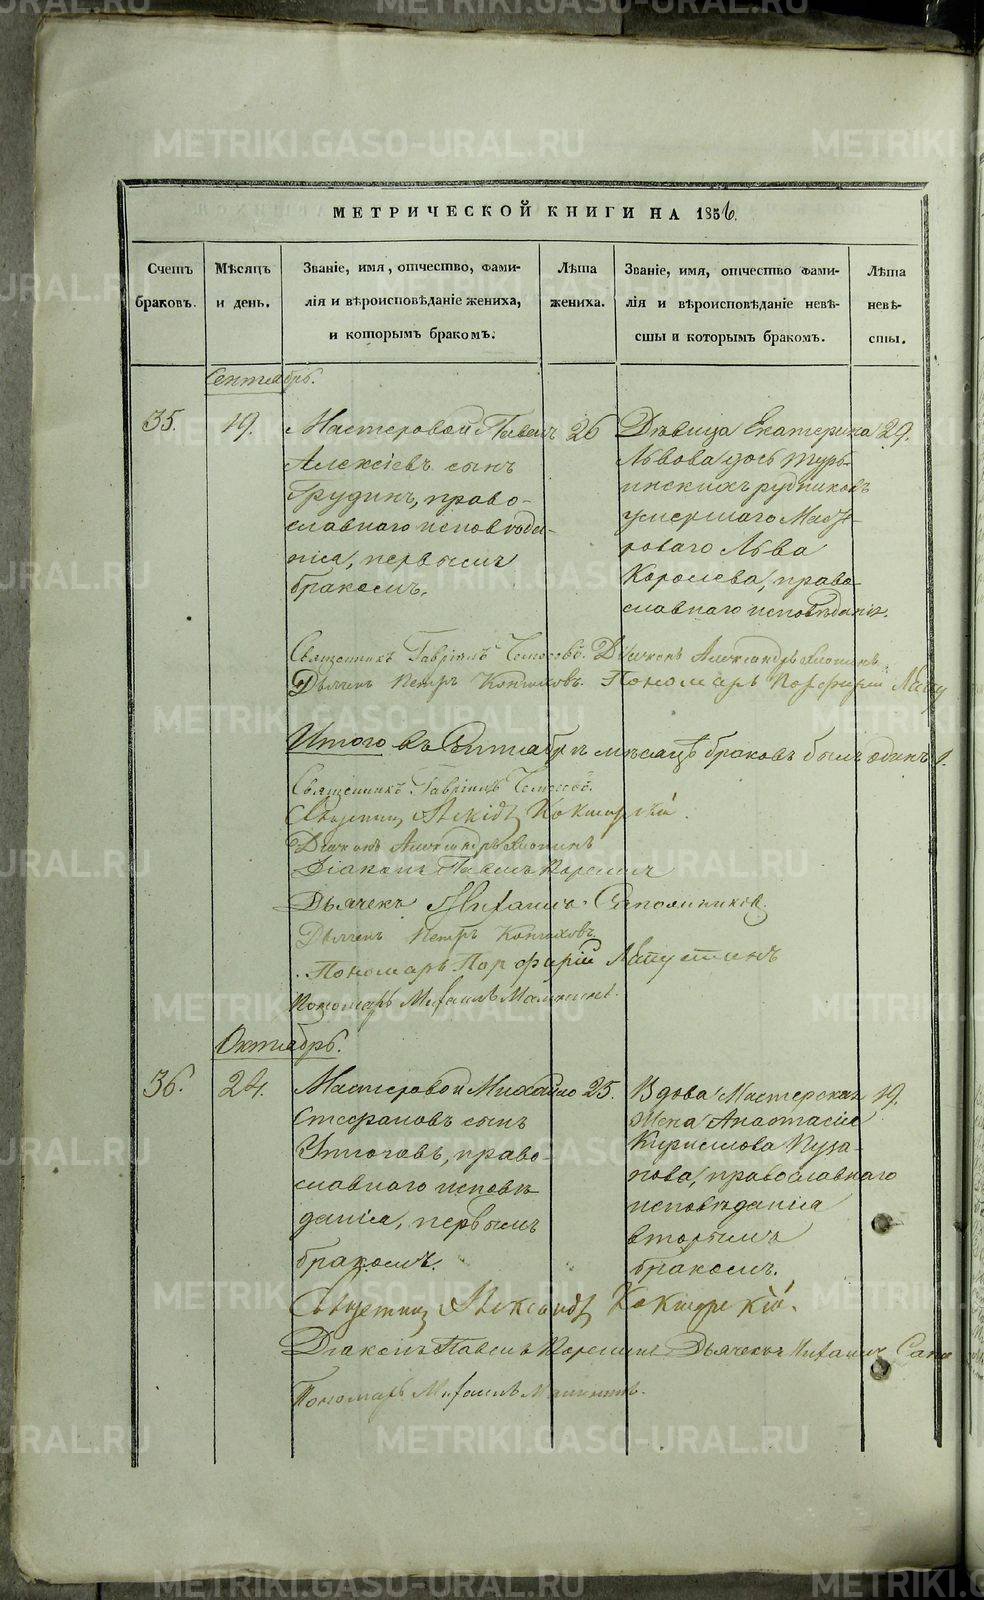 МЕТРИЧЕСКОЙ КНИГИ НА 1856.
Счетъ браковъ.
Мѣсяцъ и день.
Званіе, имя, отчество, фами-
лія и вѣроисповѣданіе жениха,
и которымъ бракомъ.
Лѣта жениха.
Званіе, имя, отчество фами-
лія и вѣроисповѣданіе невѣ-
сты и которымъ бракомъ.
Лѣта невѣ-
сты.
Сентябрь.
35.
19.
Мастеровой Павелъ
Алексіевъ сынъ
Грудинъ, право-
славнаго исповѣда-
нія, первымъ
бракомъ.
26
Дѣвица Екатерина
Львова дочь Турь-
инскихъ рудниковъ
умершаго Масте-
роваго Льва
Королева, право
славнаго исповѣданія.
29.
Священникъ Гавріилъ
Діаконъ Александръ
Дьячекъ Петръ Конюховъ. Пономарь Порфирій Лапу
Итого въ Сентябрѣ мѣсяцѣ браковъ былъ одинъ 1.
Священникъ Гавріилъ
Священникъ Александръ Кокшарскій.
Діаконъ Александръ
Діаконъ Павелъ
Дьячекъ Михаилъ Сапожниковъ
Дьячекъ Петръ Конюховъ
Пономарь Порфирій Лапустинъ
Пономарь Михаилъ
Октябрь.
36.
24.
Мастеровой Михайло
Стефановъ сынъ
право
славнаго исповѣ
данія, первымъ
бракомъ.
25.
Вдова Мастерская
Жена Анастасія
Кириллова Пуза-
нова, православнаго
исповѣданія
вторымъ
бракомъ.
19.
Священникъ Александръ Кокшарскій.
Діаконъ Павелъ Дьячекъ Михаилъ Сапо
Пономарь Михаилъ
METRIKI.GASO-URAL.RU